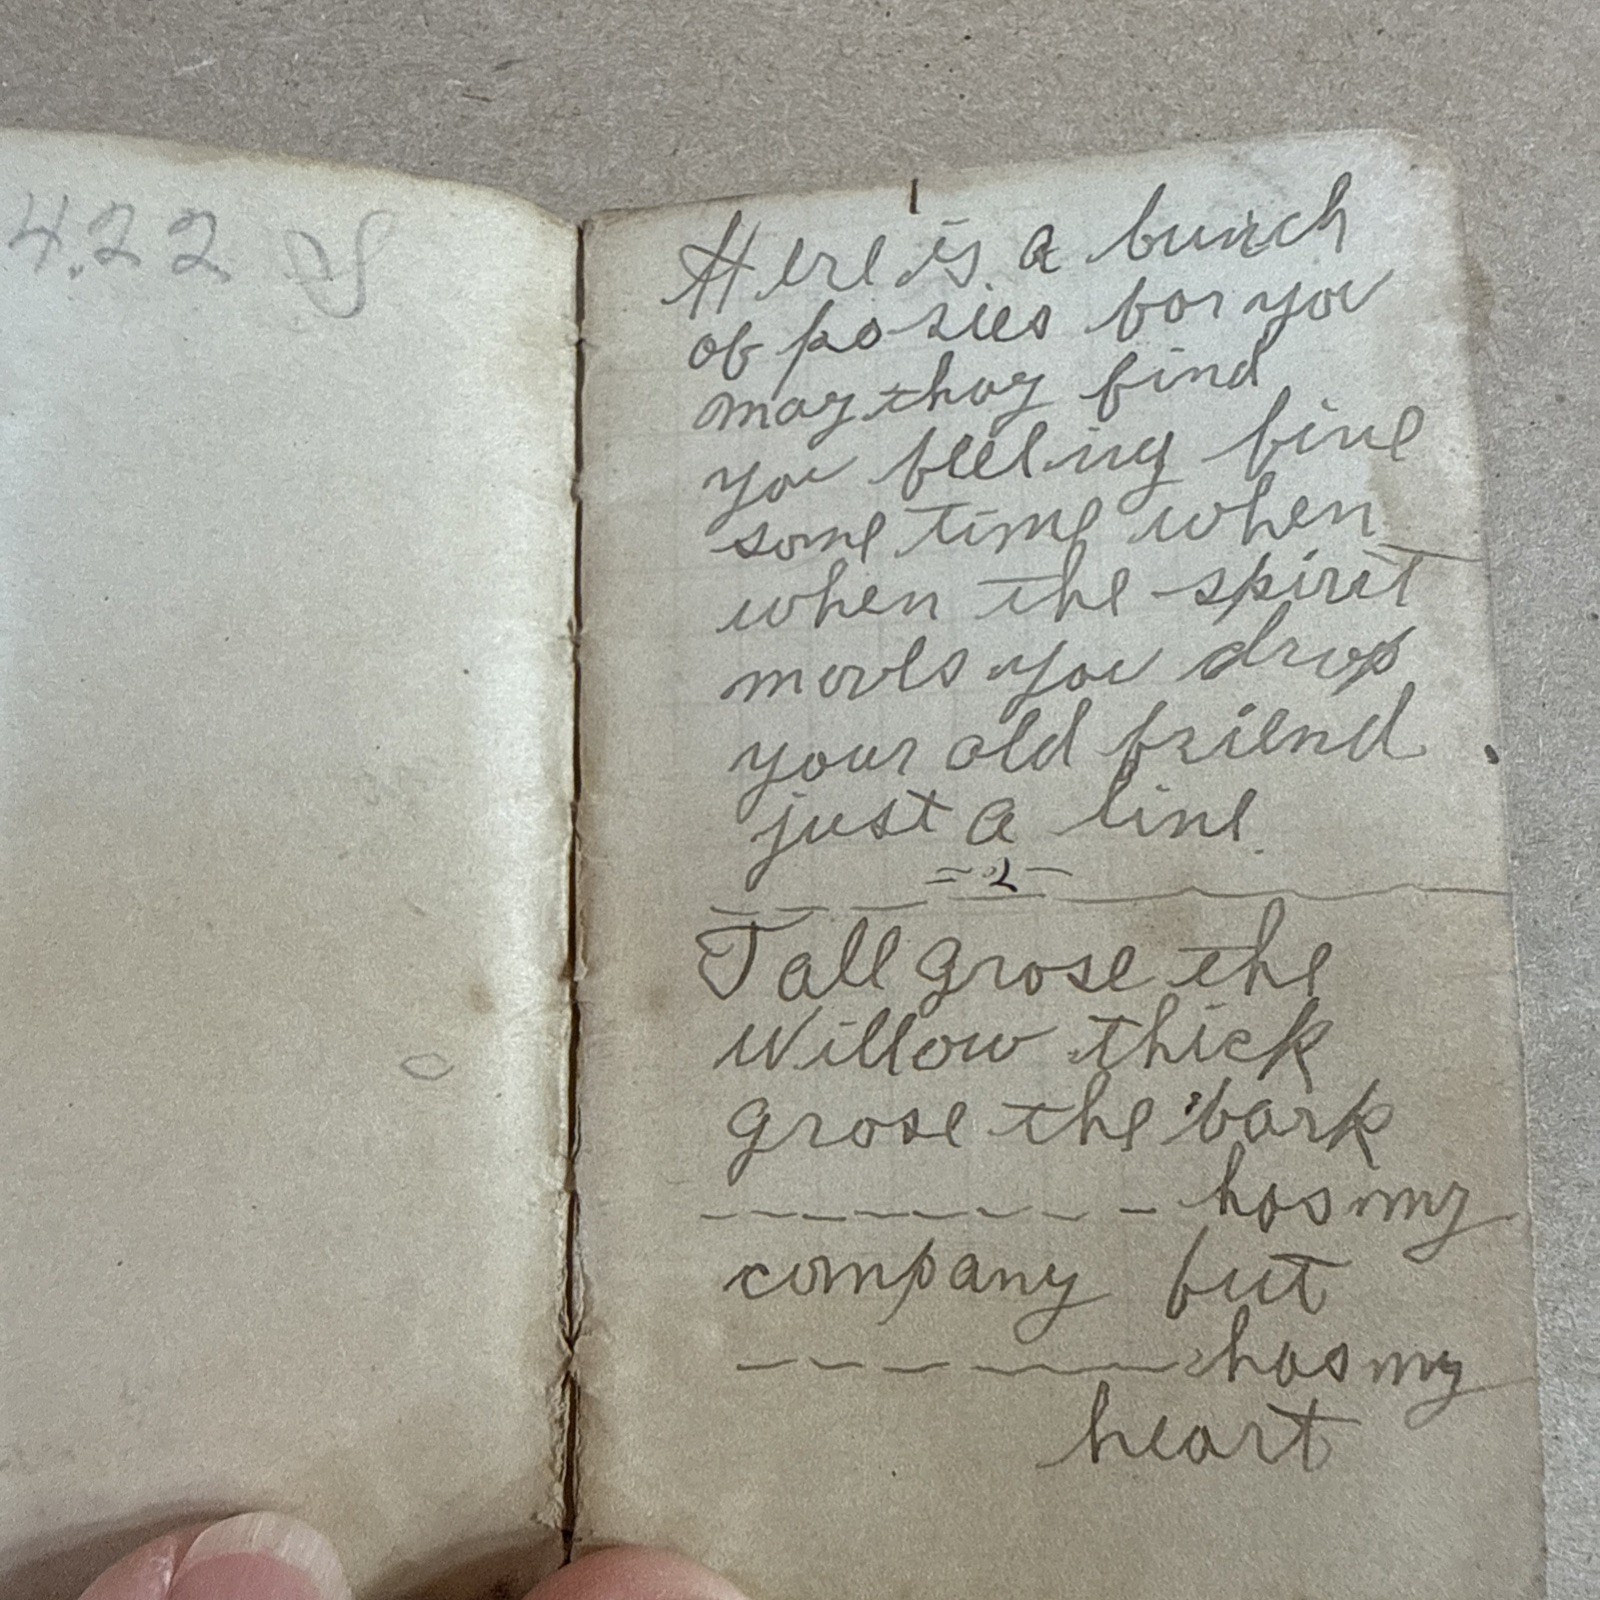 4.22
1
Here is a bunch
of posies for you
may thay find
you feeling fine
some time when
when the spirit
moves you drop
your old friend
just a line.
= 2 -
Tall grose the
Willow thick
grose the bark
- - - - - - - - has my
company but
- - - - - - has my
heart